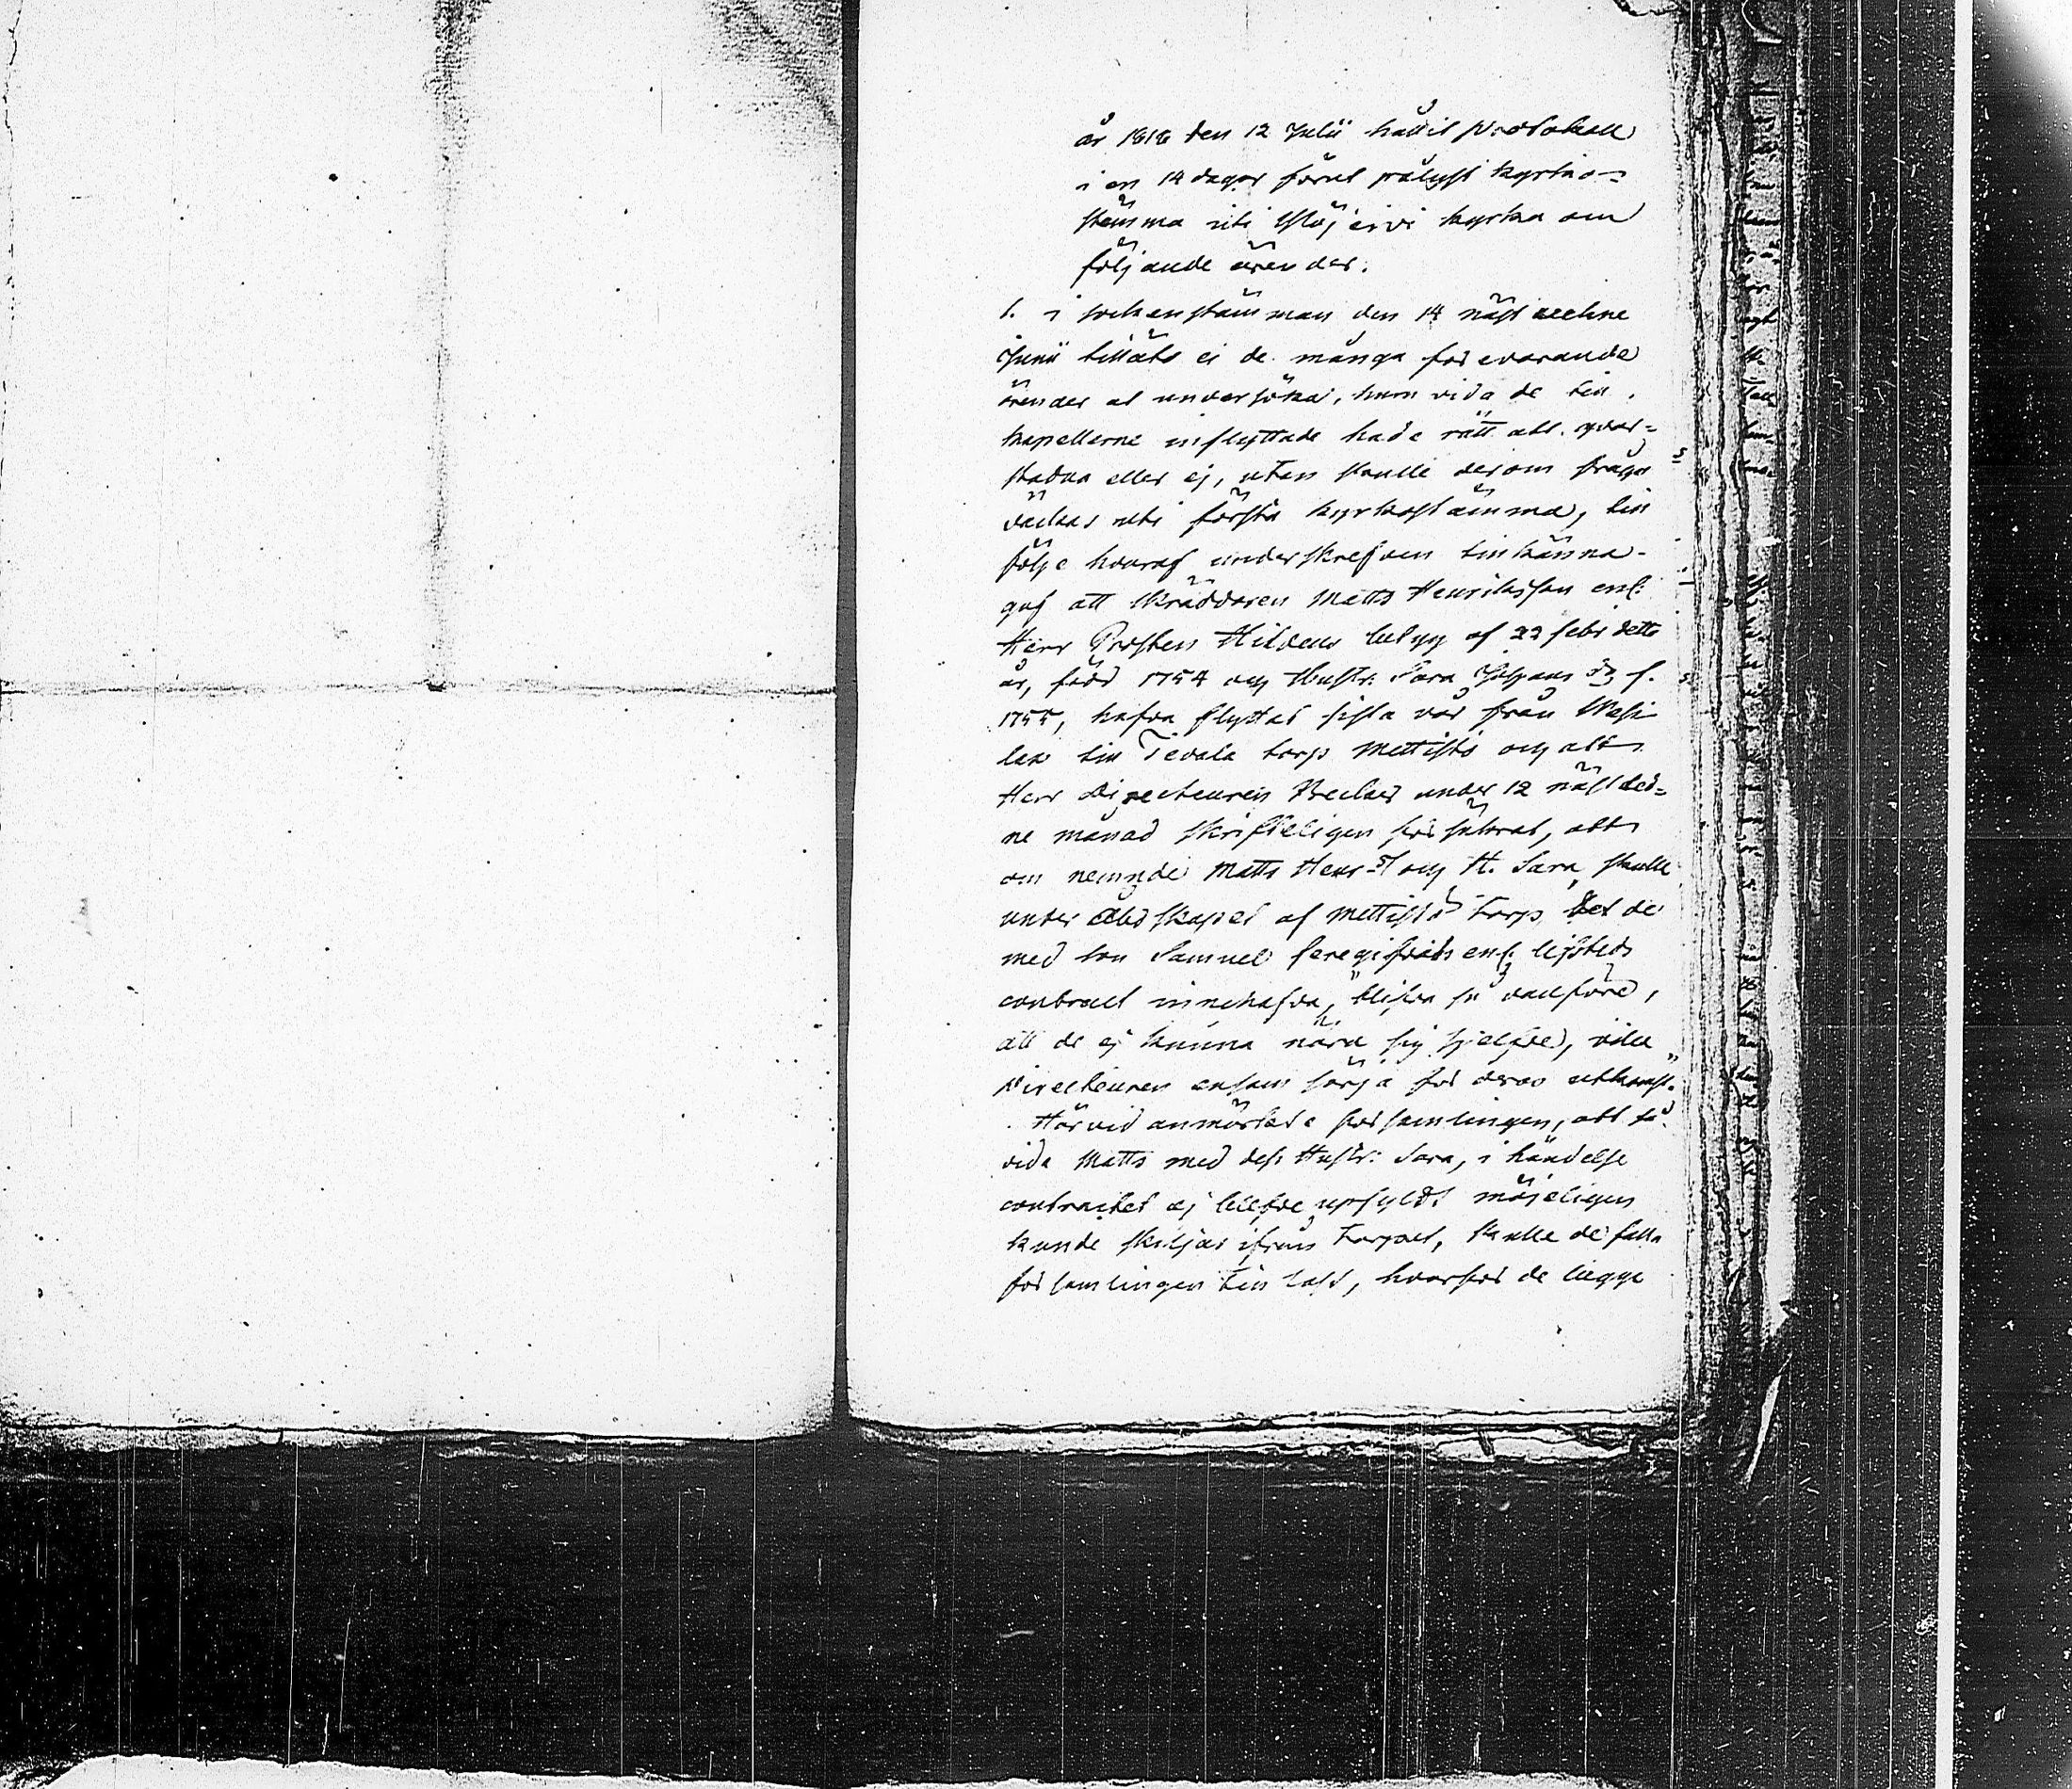 år 1818 den 12 Julii hållit Protokoll
i en 14 dagar förut pålyst kyrkio-
stämma uti Ylöjervi kyrka om
följande ärender.
1. i sockenstämman den 14 nästledne
Junii tilläts ej de många förevarande
ärender at undersöka, huru vida de till
kapellerne inflyttade hade rätt att qvar-
stadna eller ej, utan skulle derom fråga
väckas uti första kyrkostämma, till
följe hvaraf underskrefven tillkänna-
gaf att Skräddaren Matts Henriksson enl:
Herr Prosten Hildens betyg af 22 febr detta
år, född 1754 och Hustr. Sara Johans dr f.
1755, hafva flyttat sista vår från Vesi-
lax till Tevala torp Mettistö och att
Herr Directeuren under 12 nästled-
ne månad skrifteligen försäkrat, att
om nemnde Matts Henr-s och H. Sara, skulle
under åboskapet af Mettistö Torp, det de
med son Samuel enl.
contract innehafva, blifva så vanföra,
att de ej kunna nära sig sjelfve, vill
Directeuren ensam sörja för deras utkomst.
Härvid anmärkte församlingen, att så
vida Matts med dess Hustr: Sara, i händelse
contractet ej blefve upfyldt möjeligen
kunde skiljas ifrån Torpet, skulle de falla
församlingen till last, hvarför de lägge